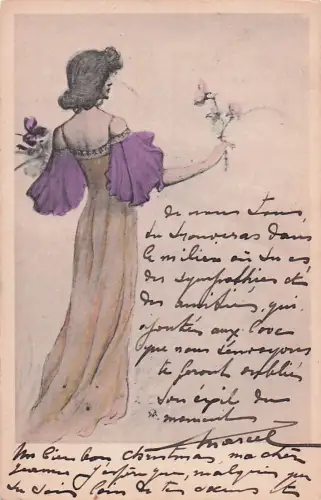 de nous tous,
tu trouveras dans
le milieu où tu es
des sympathies et
des amitiés, qui
ajoutés aux
que nous t'envoyons
te feront oublier
ton exil du
moment
Marcel
Un bien bon christmas, ma chère
j'espère que, malgré que
tu sois loin de tes et